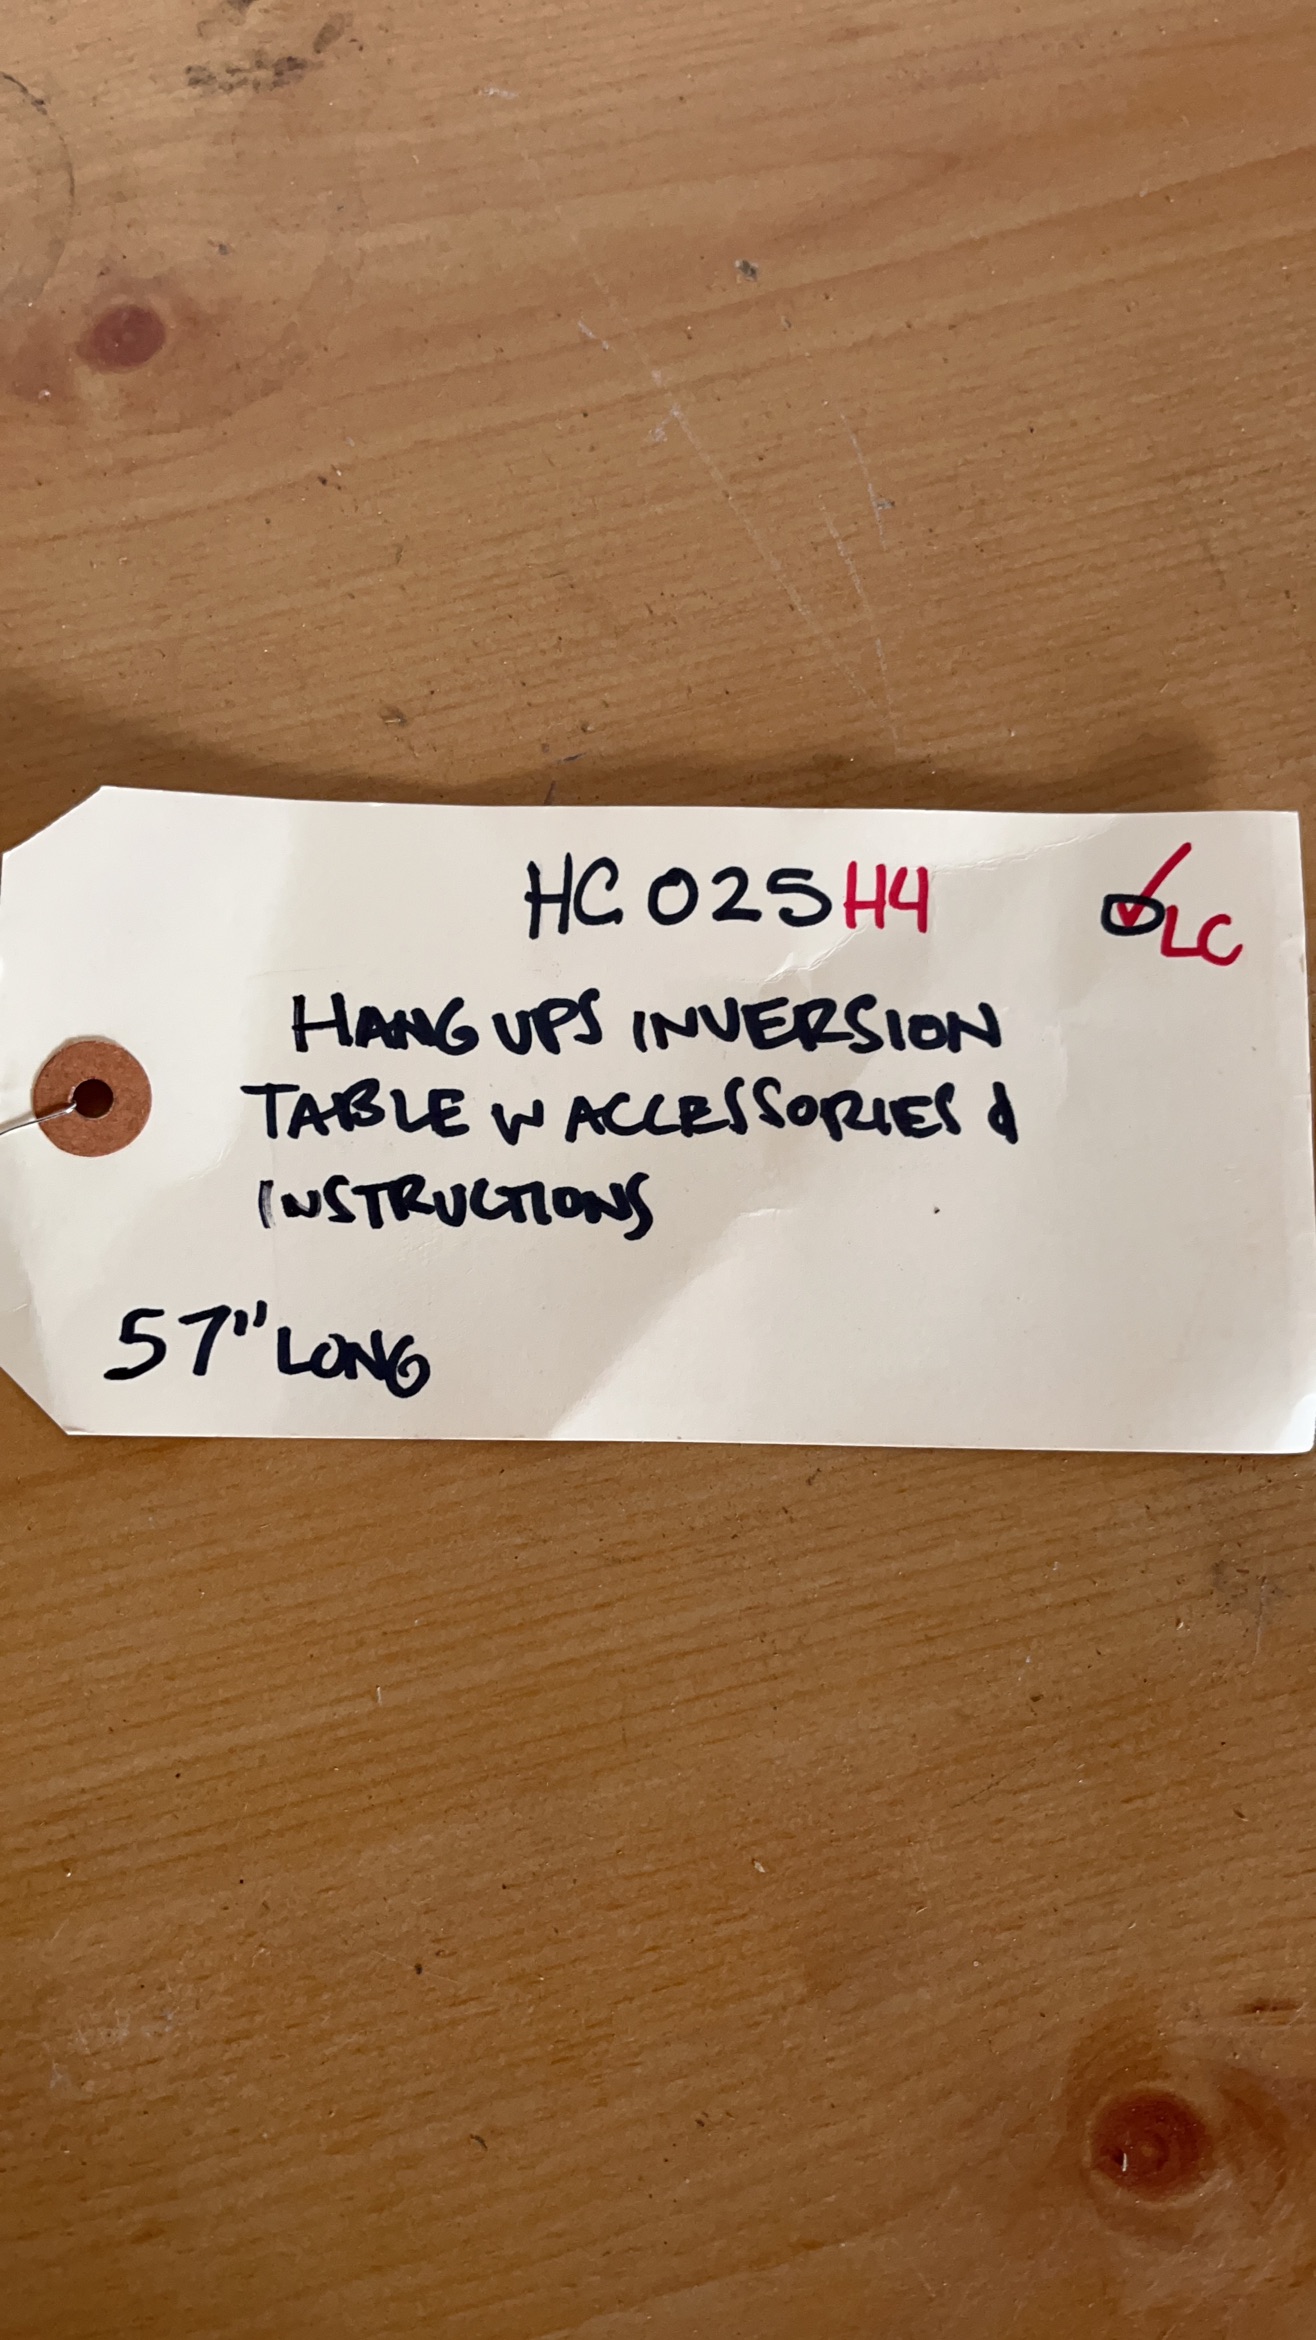 HC 025 H4 ✓ LC
HANG UPS INVERSION
TABLE W ACCESSORIES &
INSTRUCTIONS
57" LONG